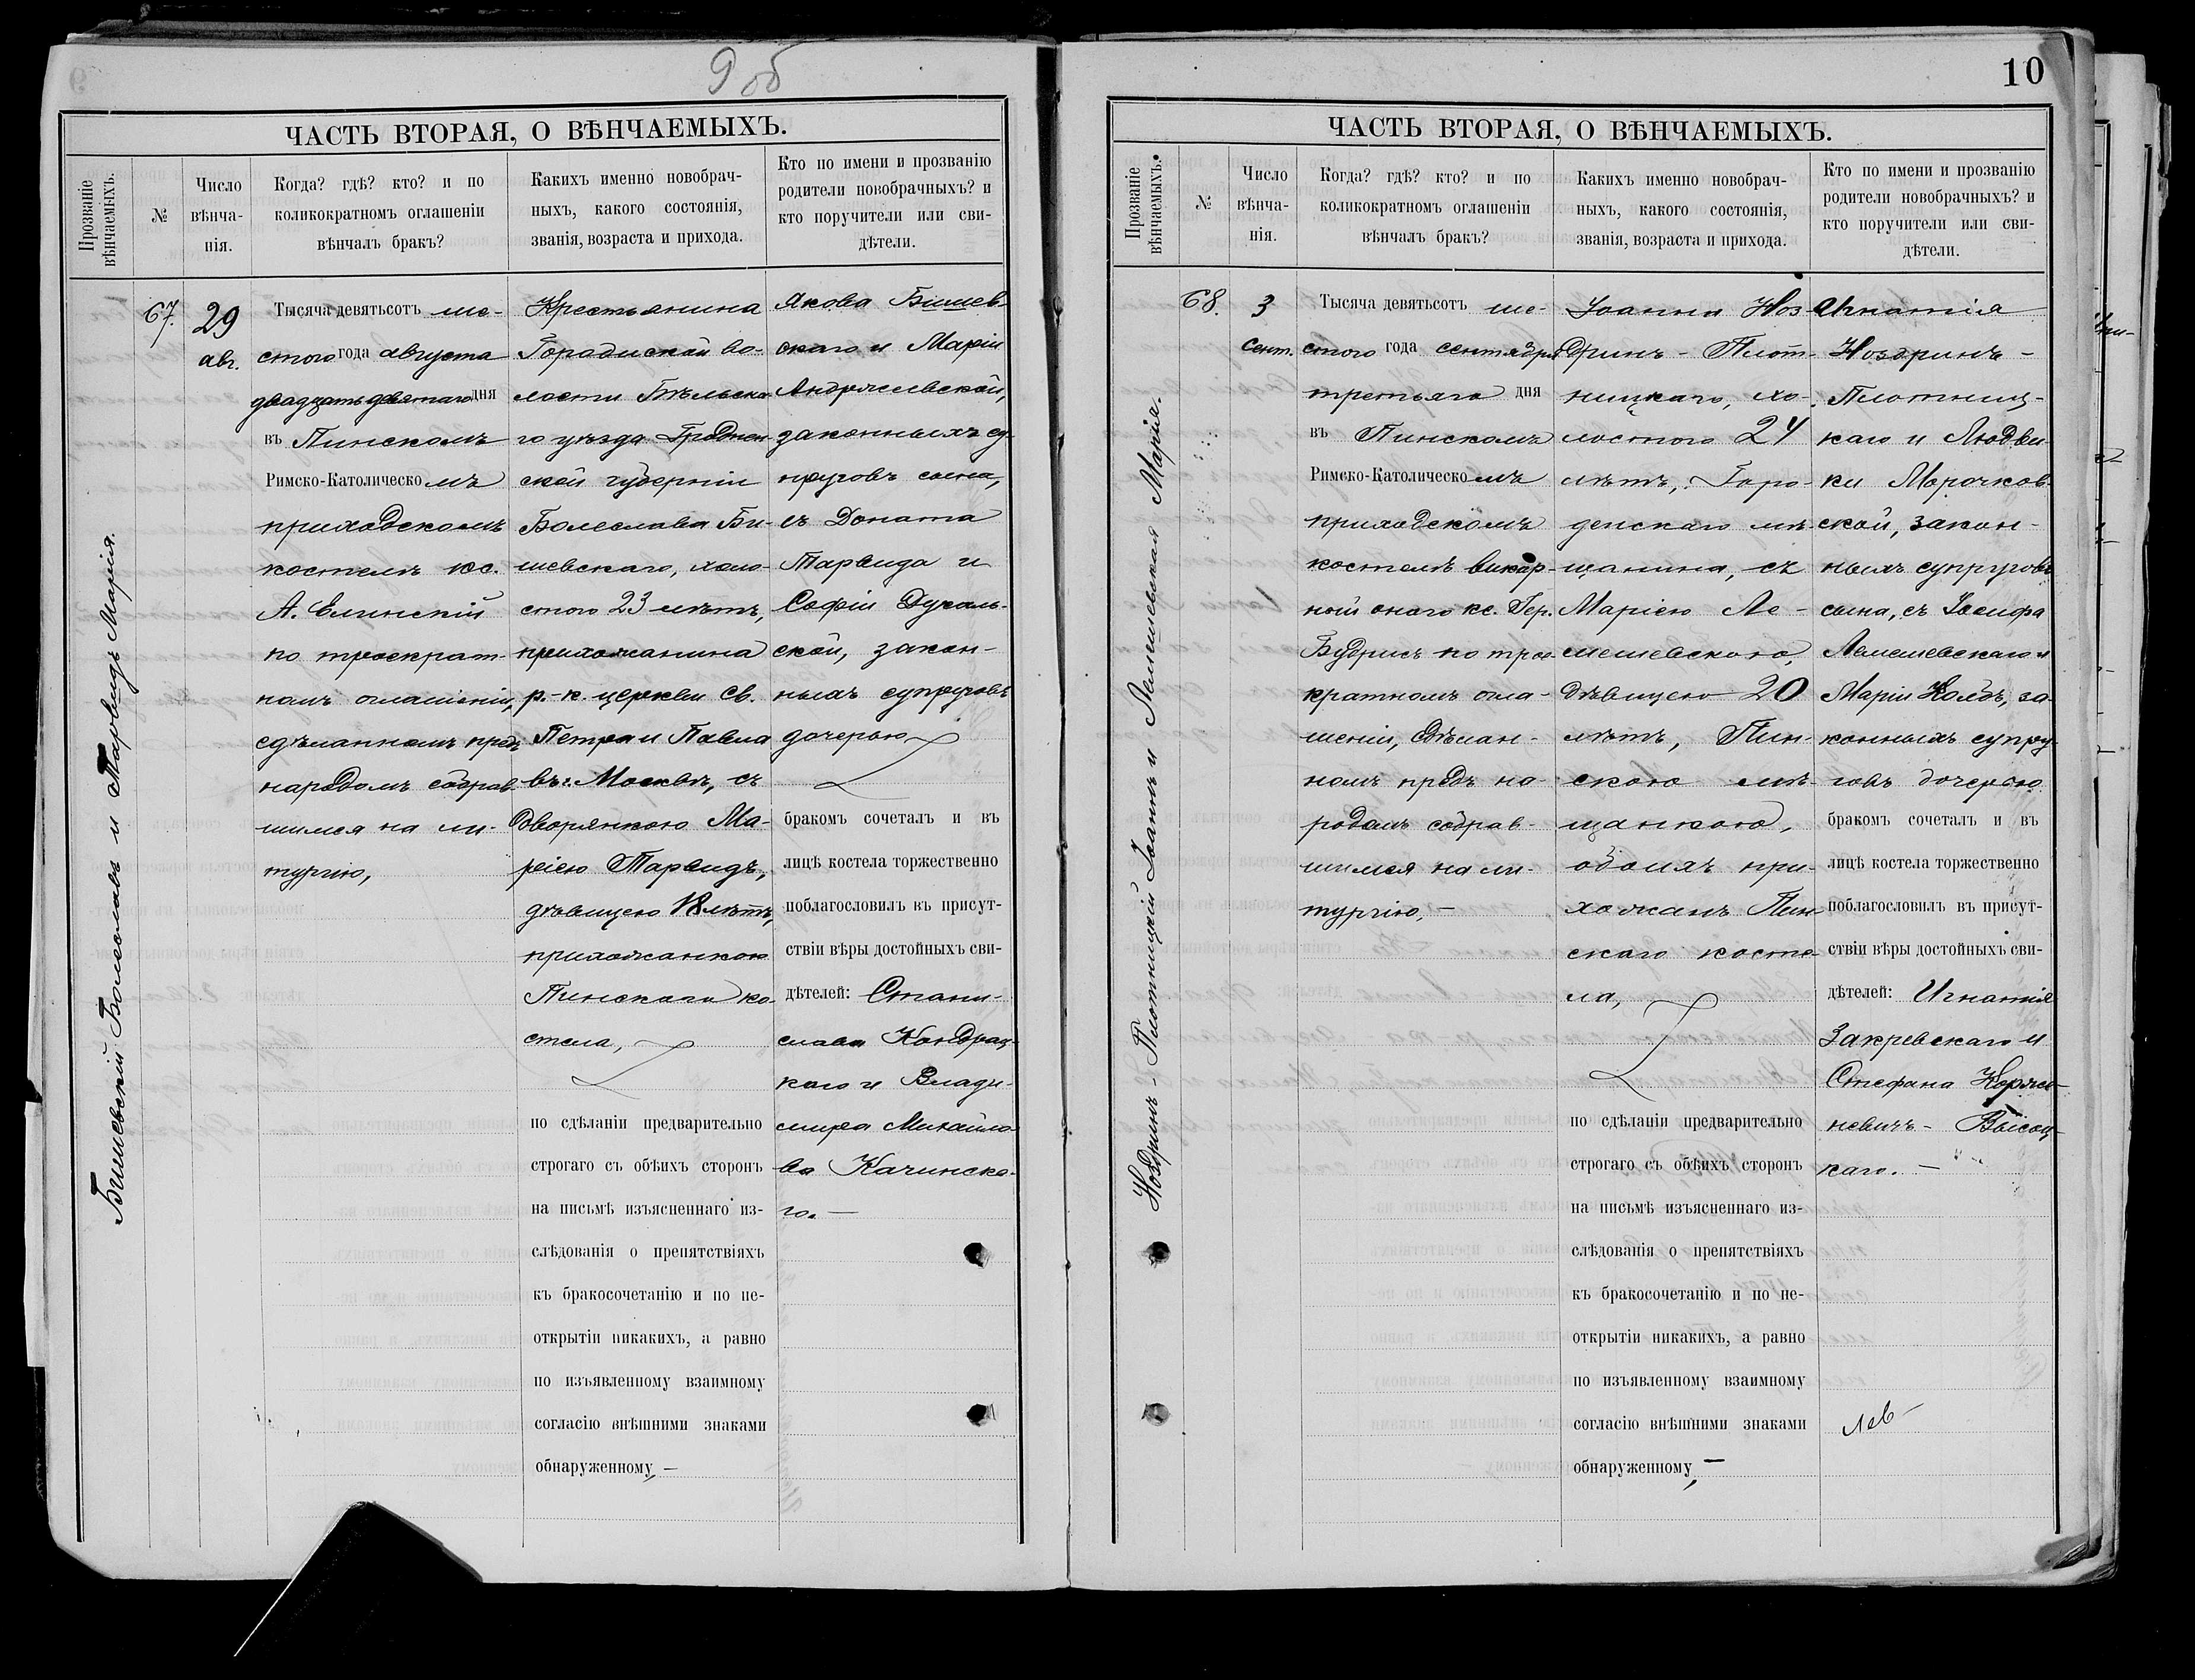 9 об
ЧАСТЬ ВТОРАЯ, О ВѢНЧАЕМЫХЪ.
Прозваніе вѣнчаемыхъ.
№
Число вѣнча-
нія.
Когда? гдѣ? кто? и по
коликократномъ оглашеніи
вѣнчалъ бракъ?
Какихъ именно новобрач-
ныхъ, какого состоянія,
званія, возраста и прихода.
Кто по имени и прозванію
родители новобрачныхъ? и
кто поручители или сви-
дѣтели.
Бишевскій Болеславъ и Тарвидъ Марія.
67.
29
авг.
Тысяча девятьсотъ ше-
стого года августа
двадцать девятаго дня
въ Пинскомъ
Римско-Католическомъ
приходскомъ
костелѣ кс.
А. Елинскій
по троекрат-
номъ оглашеніи,
сдѣланномъ предъ
народомъ собрав-
шимся на ли-
тургію,
Крестьянина
Городиской во-
лости Бѣльска-
го уѣзда Гроднен-
ской губерніи
Болеслава Би-
шевскаго, холо-
стого 23 лѣтъ,
прихожанина
р.-к. церкви Св.
Петра и Павла
въ г. Москвѣ, съ
Дворянкою Ма-
ріею Тарвидъ,
дѣвицею 18 лѣтъ,
прихожанкою
Пинскаго ко-
стела,
по сдѣланіи предварительно
строгаго съ обѣихъ сторонъ
на письмѣ изъясненнаго из-
слѣдованія о препятствіяхъ
къ бракосочетанію и по не-
открытіи никакихъ, а равно
по изъявленному взаимному
согласію внѣшними знаками
обнаруженному, —
Якова Бишев-
скаго и Маріи
Андржеевской,
законныхъ су-
пруговъ сына,
съ Доната
Тарвида и
Софіи Духаль-
ской, закон-
ныхъ супруговъ
дочерью
бракомъ сочеталъ и въ
лицѣ костела торжественно
поблагословилъ въ присут-
ствіи вѣры достойныхъ сви-
дѣтелей: Стани-
слава Кондрац-
каго и Влади-
мира Михайло-
ва Качинска-
го. —
10
ЧАСТЬ ВТОРАЯ, О ВѢНЧАЕМЫХЪ.
Прозваніе вѣнчаемыхъ.
№
Число вѣнча-
нія.
Когда? гдѣ? кто? и по
коликократномъ оглашеніи
вѣнчалъ бракъ?
Какихъ именно новобрач-
ныхъ, какого состоянія,
званія, возраста и прихода.
Кто по имени и прозванію
родители новобрачныхъ? и
кто поручители или сви-
дѣтели.
Ноздринъ - Плотницкій Іоаннъ и Лемешевская Марія.
68.
3
сент.
Тысяча девятьсотъ ше-
стого года сентября
третьяго дня
въ Пинскомъ
Римско-Католическомъ
приходскомъ
костелѣ викар-
ный онаго кс. Гер.
Будрисъ по трое-
кратномъ огла-
шеніи, сдѣлан-
номъ предъ на-
родомъ собрав-
шимся на ли-
тургію, —
Іоанна Ноз-
дринъ - Плот-
ницкаго, хо-
лостого 24
лѣтъ, Горо-
денскаго мѣ-
щанина, съ
Маріею Ле-
мешевскою,
дѣвицею 20
лѣтъ, Пин-
скою мѣ-
щанкою,
обоихъ при-
хожанъ Пин-
скаго косте-
ла,
по сдѣланіи предварительно
строгаго съ обѣихъ сторонъ
на письмѣ изъясненнаго из-
слѣдованія о препятствіяхъ
къ бракосочетанію и по не-
открытіи никакихъ, а равно
по изъявленному взаимному
согласію внѣшними знаками
обнаруженному, —
Игнатія
Ноздринъ -
Плотниц-
каго и Людви-
ки Морочков-
ской, закон-
ныхъ супруговъ
сына, съ Іосифа
Лемешевскаго и
Маріи Колбъ, за-
конныхъ супру-
говъ дочерью
бракомъ сочеталъ и въ
лицѣ костела торжественно
поблагословилъ въ присут-
ствіи вѣры достойныхъ сви-
дѣтелей: Игнатія
Закревскаго и
Стефана Корже-
невичъ - Высоц-
каго. —